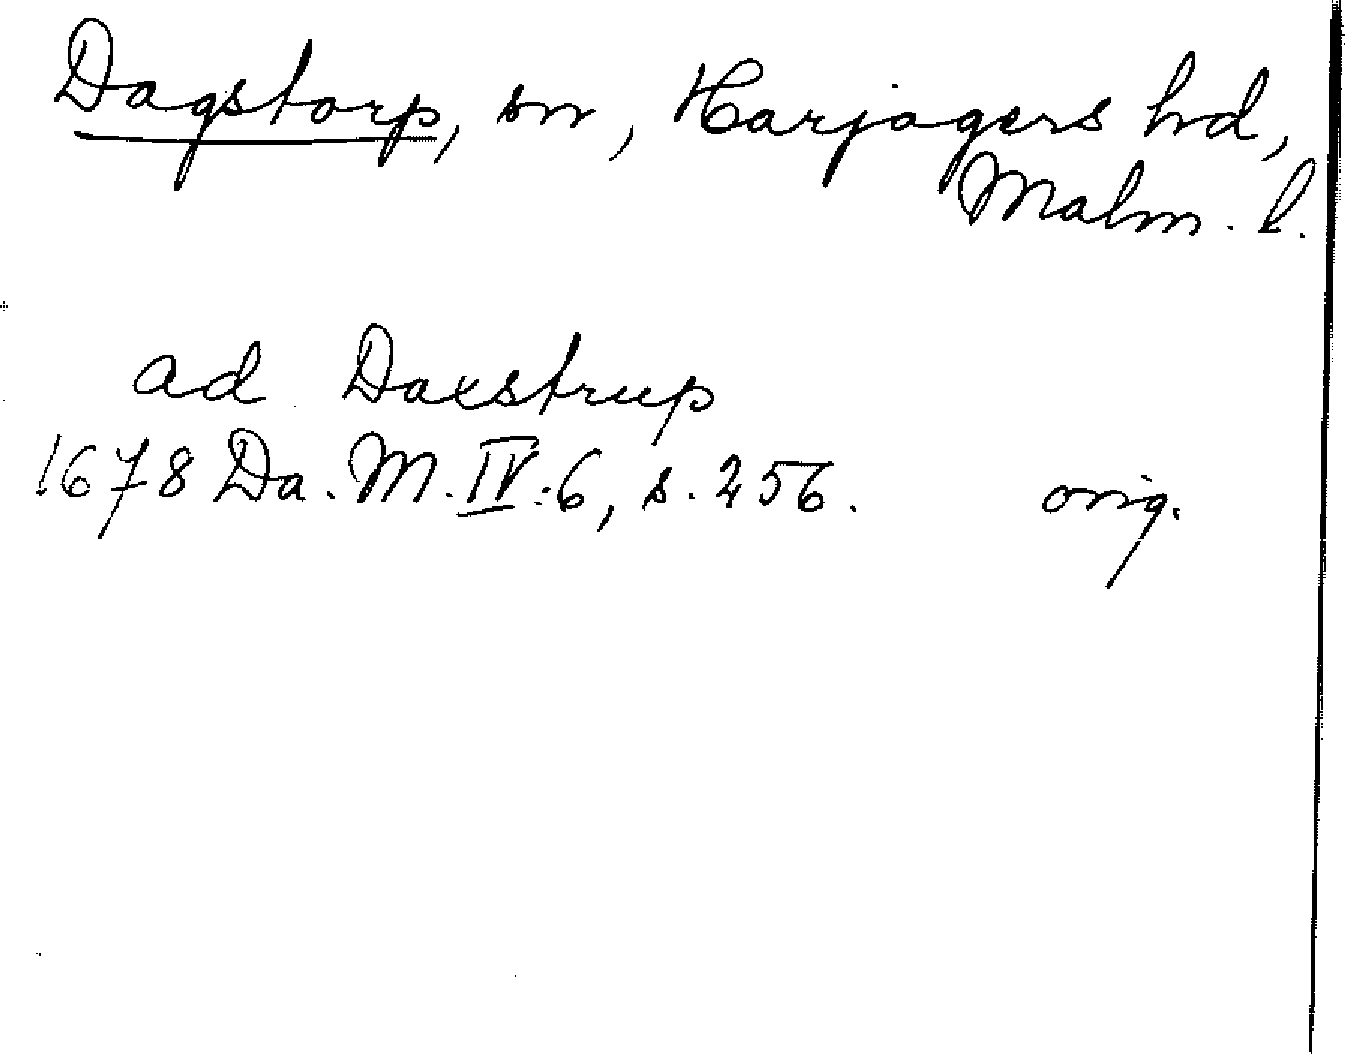 Dagstorp, sn, Harjagers hd,
Malm. l.
ad Daxstrup
1678 Da. M. IV:6, s. 256. orig.